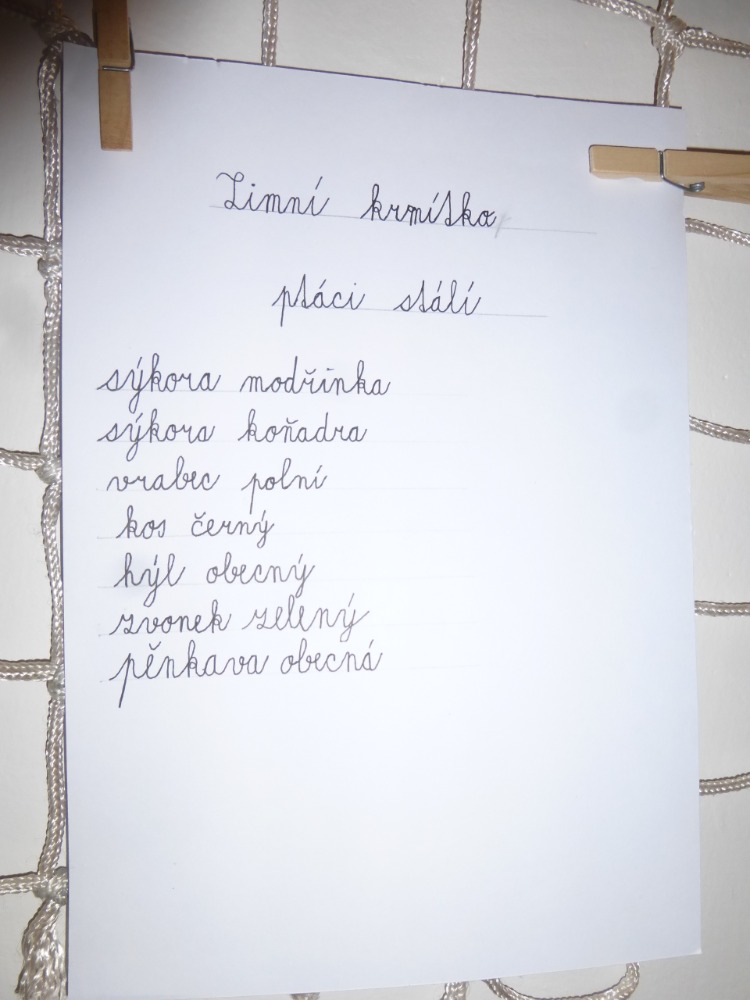 Zimní krmítko
ptáci stálí
sýkora modřinka
sýkora koňadra
vrabec polní
kos černý
hýl obecný
zvonek zelený
pěnkava obecná